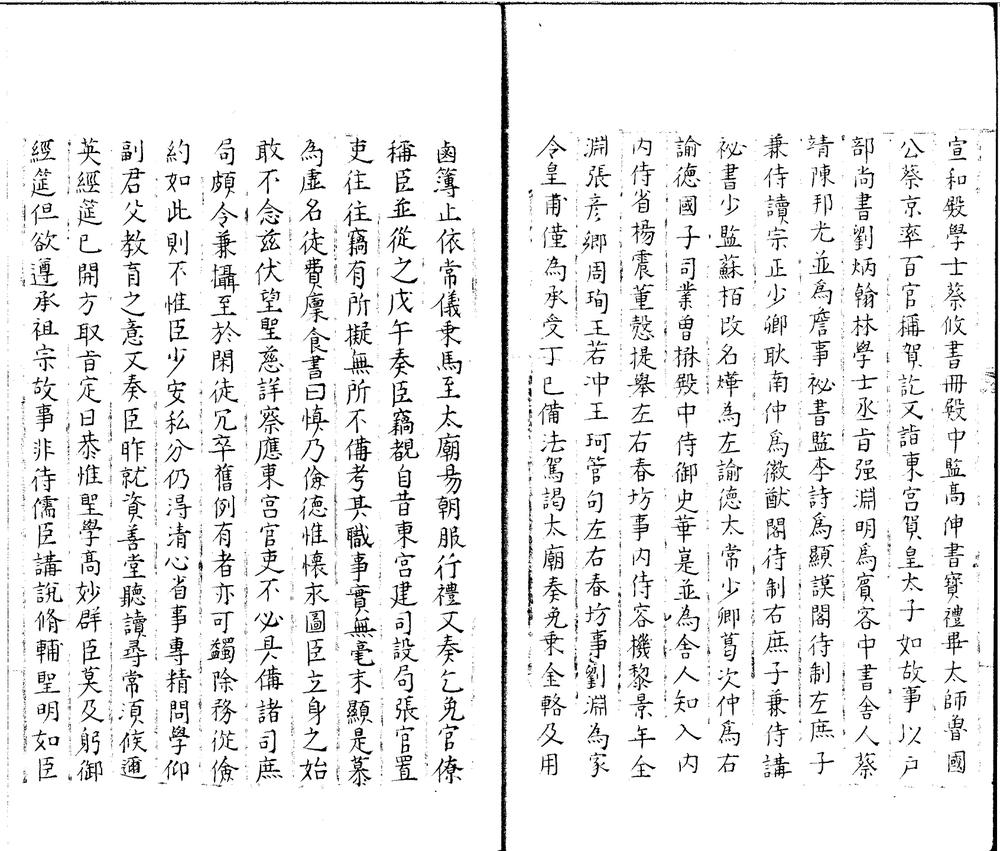 宣和殿學士蔡攸書冊殿中監高伸書寶禮畢太師魯國
公蔡京率百官稱賀訖又詣東宮賀皇太子如故事以户
部尚書劉炳翰林學士丞旨强淵明為賓客中書舎人蔡
靖陳邦光並為詹事祕書監李詩為顯謨閣待制左庶子
兼侍讀宗正少卿耿南仲為徽猷閣待制右庶子兼侍講
祕書少監蘇栢改名燁為左諭德太常少卿葛次仲為右
諭德國子司業曽楙殿中侍御史華㝢並為舎人知入内
内侍省楊震董慤提舉左右春坊事内侍容機黎景年全
淵張彦卿周珣王若冲王珂管句左右春坊事劉淵為家
令皇甫僅為承受丁巳備法駕謁太廟奏免乗金輅及用
鹵簿止依常儀乗馬至太廟易朝服行禮又奏乞免官僚
稱臣並從之戊午奏臣竊覩自昔東宮建司設局張官置
吏往往竊有所擬無所不備考其職事實無毫末顯是慕
為虛名徒費廪食書曰慎乃儉德惟懷永圖臣立身之始
敢不念兹伏望聖慈詳察應東宮官吏不必具備諸司庶
局頗令兼攝至於閑徒冗卒舊例有者亦可蠲除務從儉
約如此則不惟臣少安私分仍得清心省事專精問學仰
副君父教育之意又奏臣昨就資善堂聽讀尋常須候邇
英經筵已開方取旨定日恭惟聖學高妙群臣莫及躬御
經筵但欲遵承祖宗故事非待儒臣講說脩輔聖明如臣